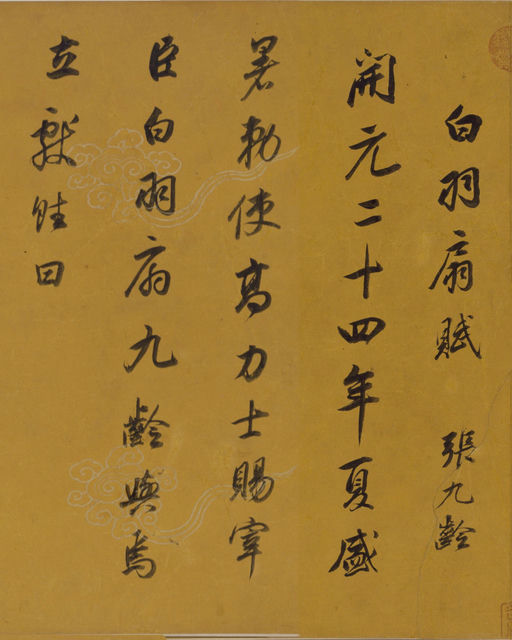 白羽扇賦 張九齡
開元二十四年夏盛
暑勅使高力士賜宰
臣白羽扇九齡與焉
立獻賦曰